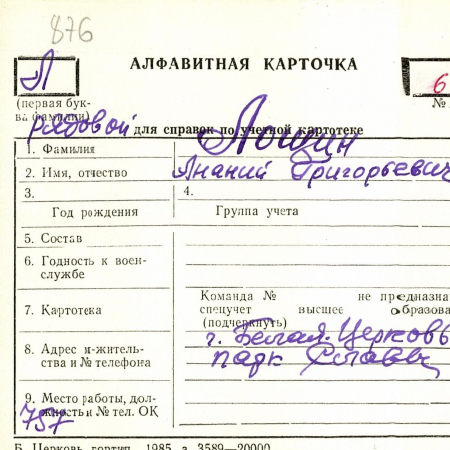 876
Л
АЛФАВИТНАЯ КАРТОЧКА
6
(первая бук-
ва фамилии)
№
рядовой
для справок по учетной картотеке
1. Фамилия Лошин
2. Имя, отчество Ананий Григорьевич
3. 4.
Год рождения Группа учета
5. Состав
6. Годность к воен-
службе
7. Картотека
Команда № не предназна
спецучет высшее образова
(подчеркнуть)
8. Адрес и житель-
ства и № телефона
г. Белая-Церковь
парк Славы
9. Место работы, дол-
жность и № тел. ОК
757
Б. Церковь гортип. 1985 з. 3589—20000